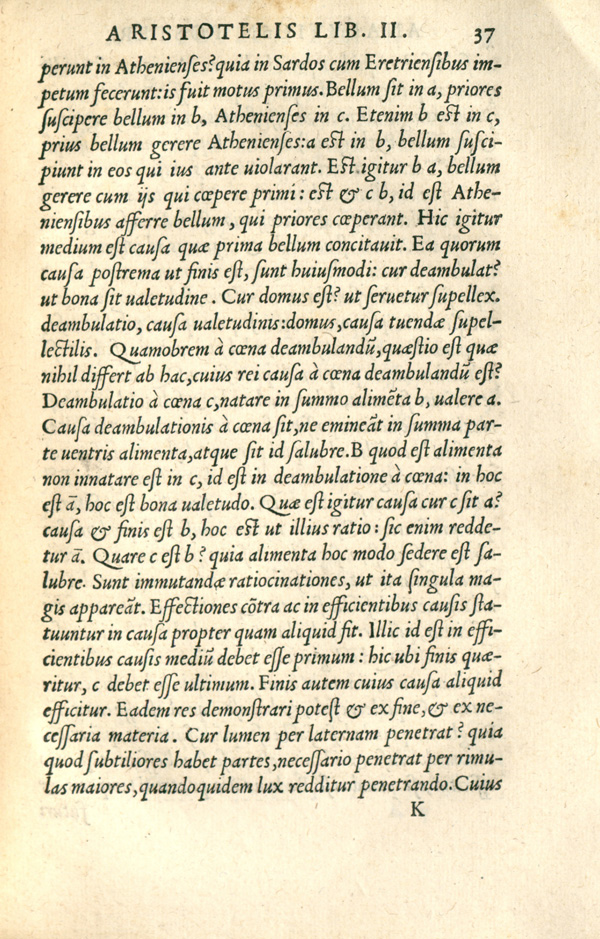 ARISTOTELIS LIB. II. 37
perunt in Athenienses? quia in Sardos cum Eretriensibus im-
petum fecerunt: is fuit motus primus. Bellum sit in a, priores
suscipere bellum in b, Athenienses in c. Etenim b est in c,
prius bellum gerere Athenienses: a est in b, bellum susci-
piunt in eos qui ius ante uiolarant. Est igitur b a, bellum
gerere cum ijs qui cœpere primi: est & c b, id est Athe-
niensibus afferre bellum, qui priores cœperant. Hic igitur
medium est causa quæ prima bellum concitauit. Ea quorum
causa postrema ut finis est, sunt huiusmodi: cur deambulat?
ut bona sit ualetudine. Cur domus est? ut seruetur supellex.
deambulatio, causa ualetudinis: domus, causa tuendæ supel-
lectilis. Quamobrem à cœna deambulandũ, quæstio est quæ
nihil differt ab hac, cuius rei causa à cœna deambulandũ est?
Deambulatio à cœna c, natare in summo alimẽta b, ualere a.
Causa deambulationis à cœna sit, ne emineãt in summa par-
te uentris alimenta, atque sit id salubre. B quod est alimenta
non innatare est in c, id est in deambulatione à cœna: in hoc
est ā, hoc est bona ualetudo. Quæ est igitur causa cur c sit a?
causa & finis est b, hoc est ut illius ratio: sic enim redde-
tur ā. Quare c est b? quia alimenta hoc modo sedere est sa-
lubre. Sunt immutandæ ratiocinationes, ut ita singula ma-
gis appareãt. Effectiones cõtra ac in efficientibus causis sta-
tuuntur in causa propter quam aliquid fit. Illic id est in effi-
cientibus causis mediũ debet esse primum: hic ubi finis quæ-
ritur, c debet esse ultimum. Finis autem cuius causa aliquid
efficitur. Eadem res demonstrari potest & ex fine, & ex ne-
cessaria materia. Cur lumen per laternam penetrat? quia
quod subtiliores habet partes, necessario penetrat per rimu-
las maiores, quandoquidem lux redditur penetrando. Cuius
K